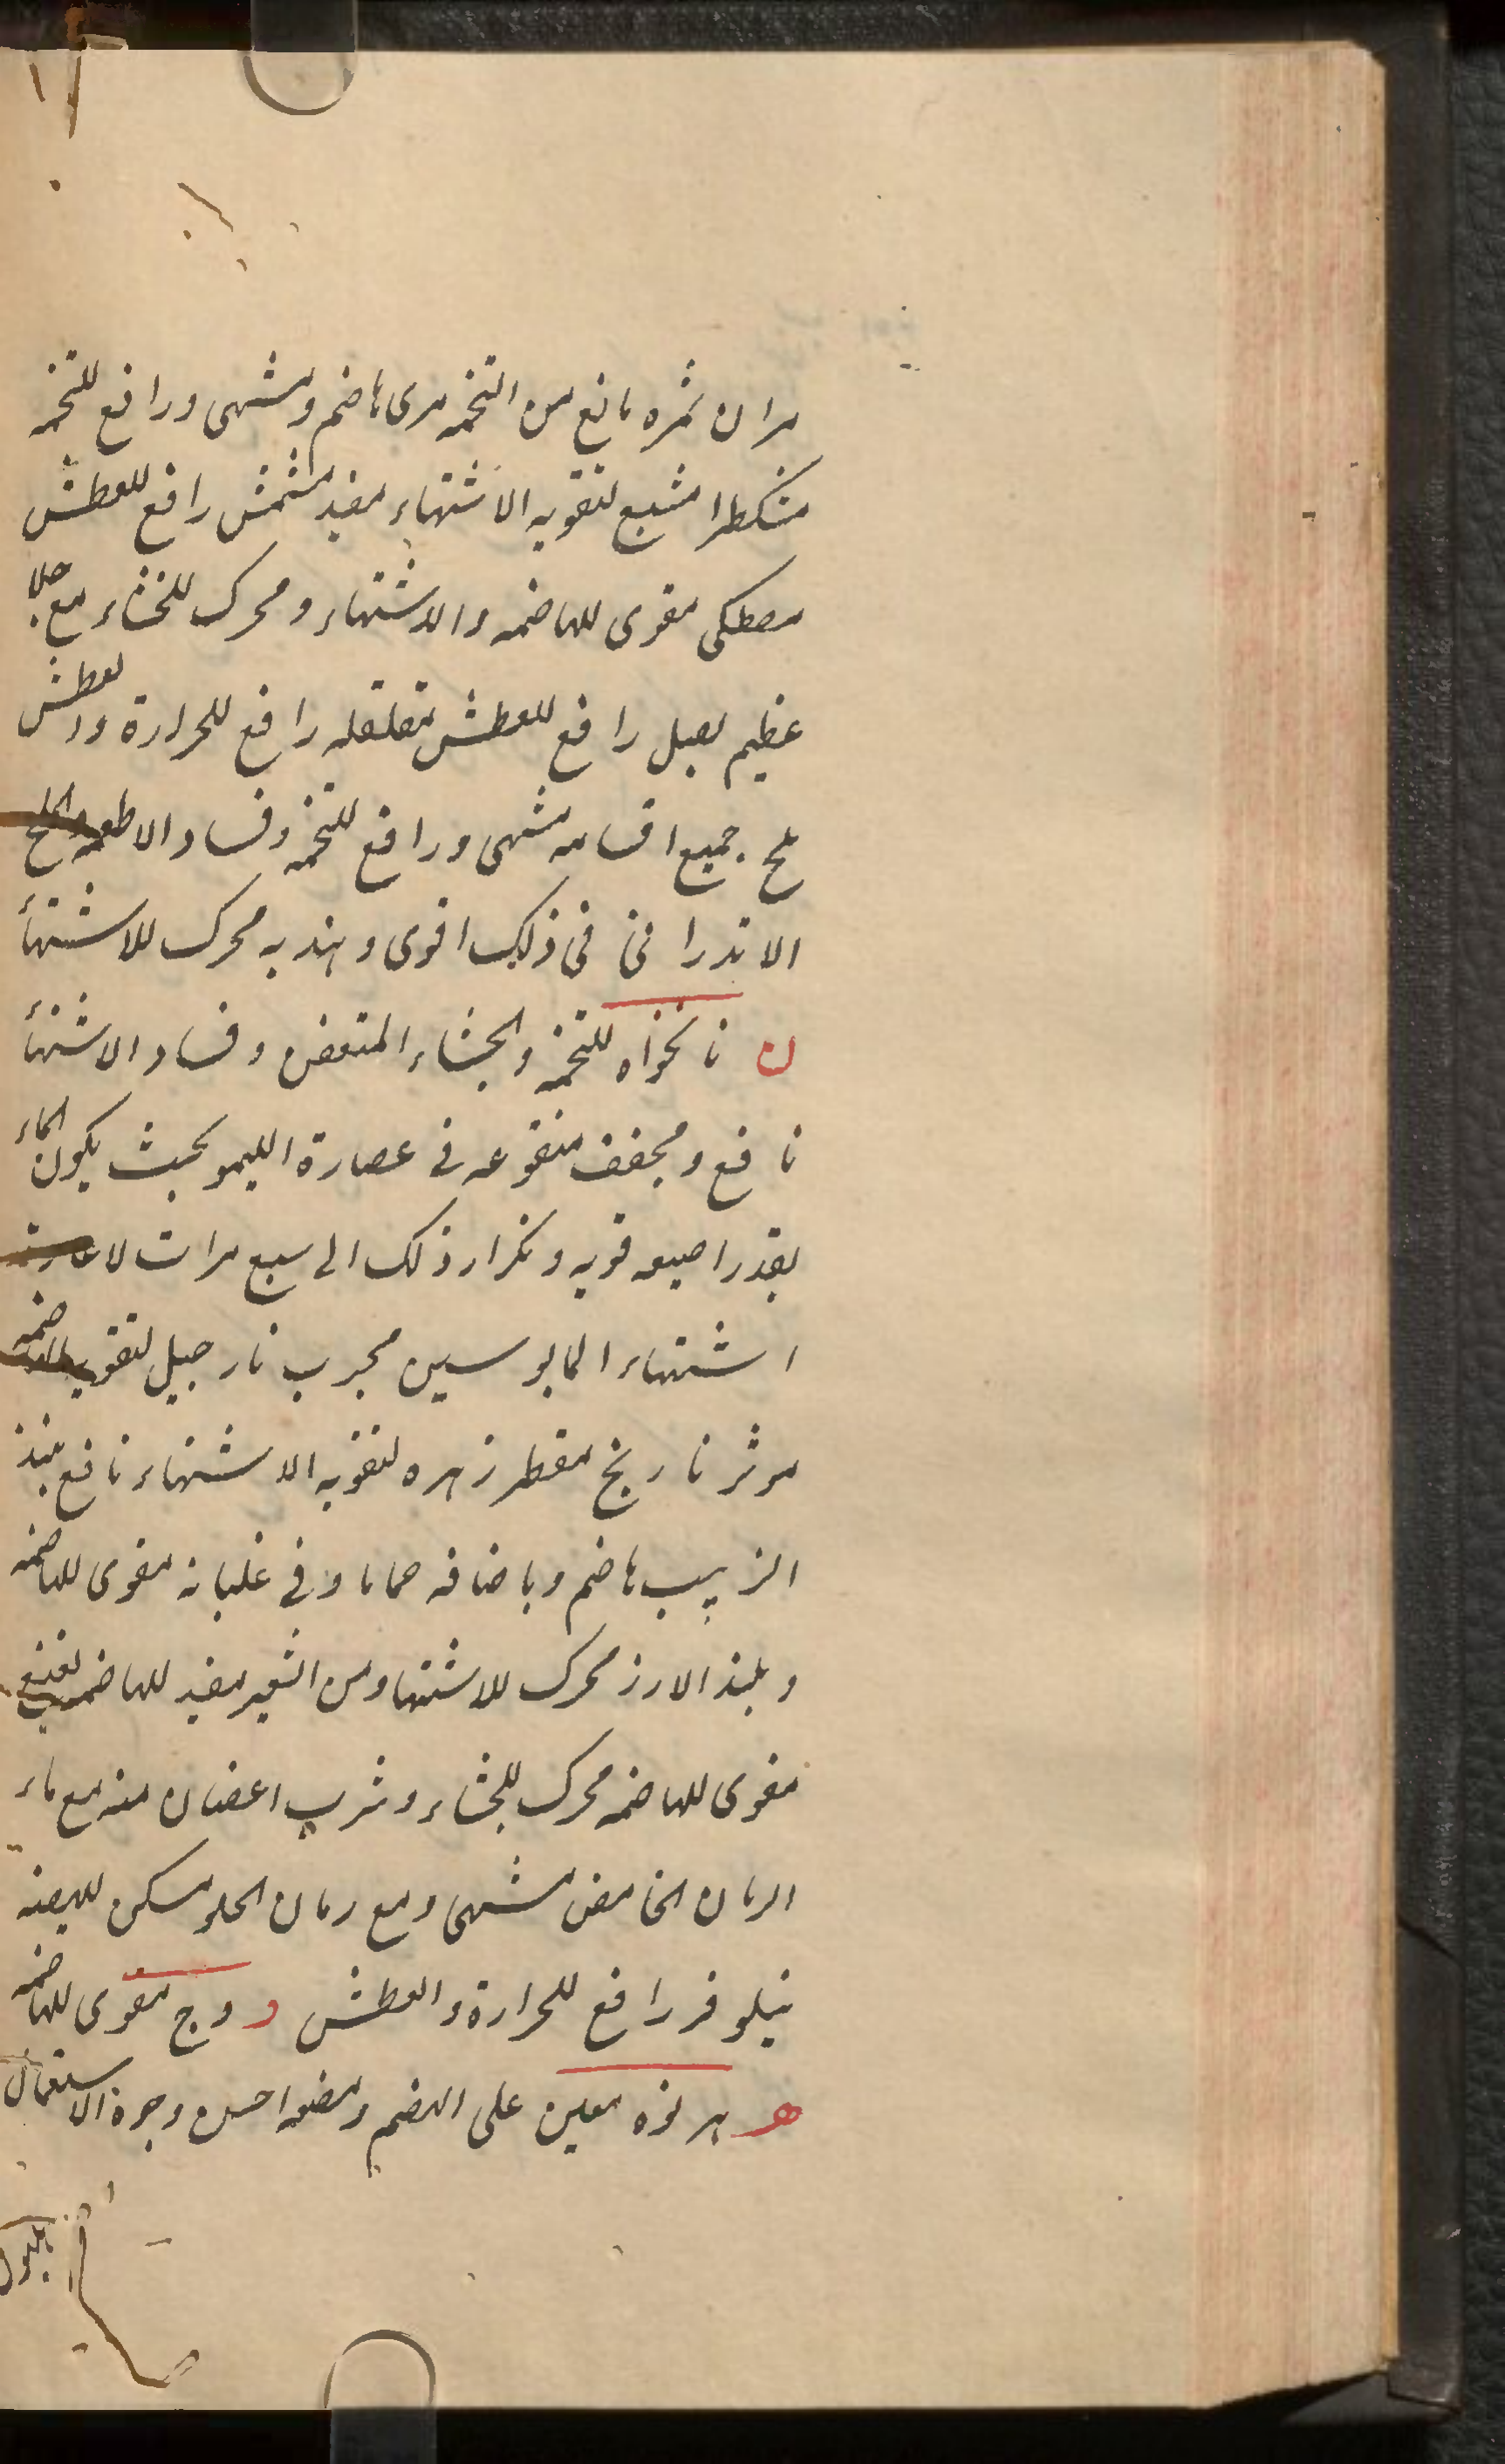 مران ثمره مانع من التخمه مری هاضم و مشهی و رافع للتخمه
مشکطرا مشیع لتقویه الاشتهاء مفید مشمش رافع للعطش
مصطکی مقوی للهاضمه و الاشتهاء و محرک للخشاء مع
عظیم رافع للعطش رافع للحرارة والعطش
ملح جمیع اقسامه مشهی و رافع للتخمه و فساد الاطعمه والملح
الاندرانی فی ذلک اقوی و هندبه محرک للاشتهأ
ن نانخواه للتخمه والجشاء المتعفن و فساد الاشتهأ
نافع و مجفف منقوعه فی عصارة اللیمو بحیث یکون الماء
بقدر اصبعه فوقه و تکرار ذلک الی سبع مرات
اشتهاء المایوسین مجرب نارجیل لتقویه
موثر نارنج مقطر زهره لتقویه الاشتهاء نافع نبیذ
الزبیب هاضم و باضافه حماما و فی غلیانه مقوی للهاضمه
و نبیذ الارز محرک للاشتها و من الشعیر مفید للهاضمه نعنع
مقوی للهاضمه محرک للجشاء و شرب اغصان منه مع ماء
الرمان الحامض مشهی و مع رمان الحلو مسکن للهیضه
نیلوفر رافع للحرارة والعطش و وج مقوی للهاضمه
هـ هرنوه معین علی الهضم و مضغه احسن وجوه الاستعمال